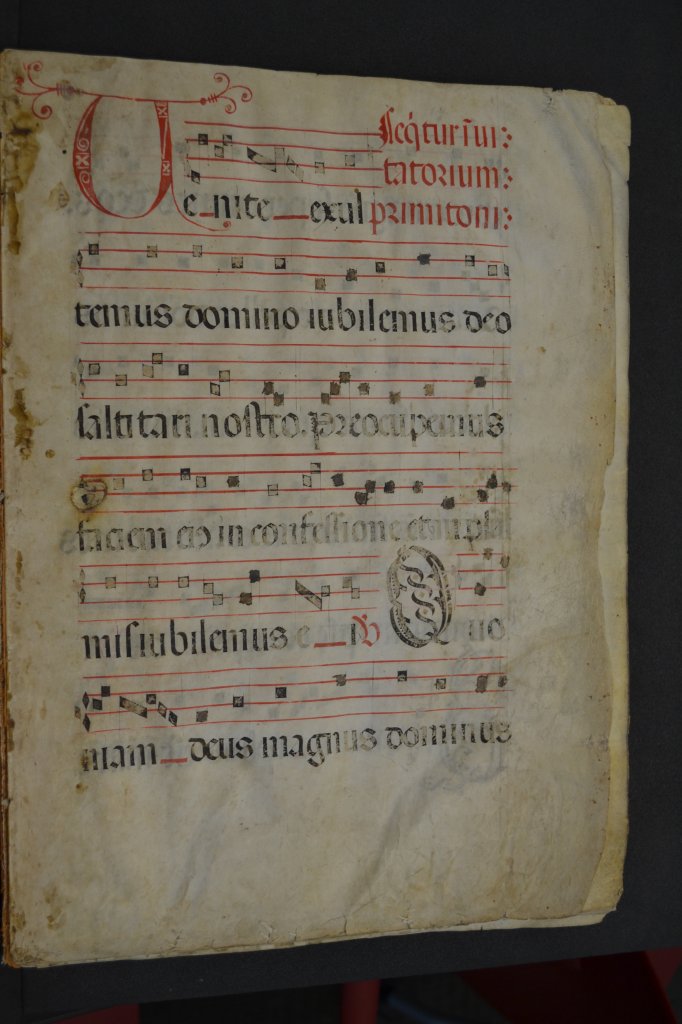 Seq̃tur ĩui:
tatorium:
Venite exul primi toni:
temus domino iubilemus deo
saltitari nostro. preocupemus
faciem eius in confessione et in psal
mis iubilemus ei ℣ Quo
niam deus magnus dominus